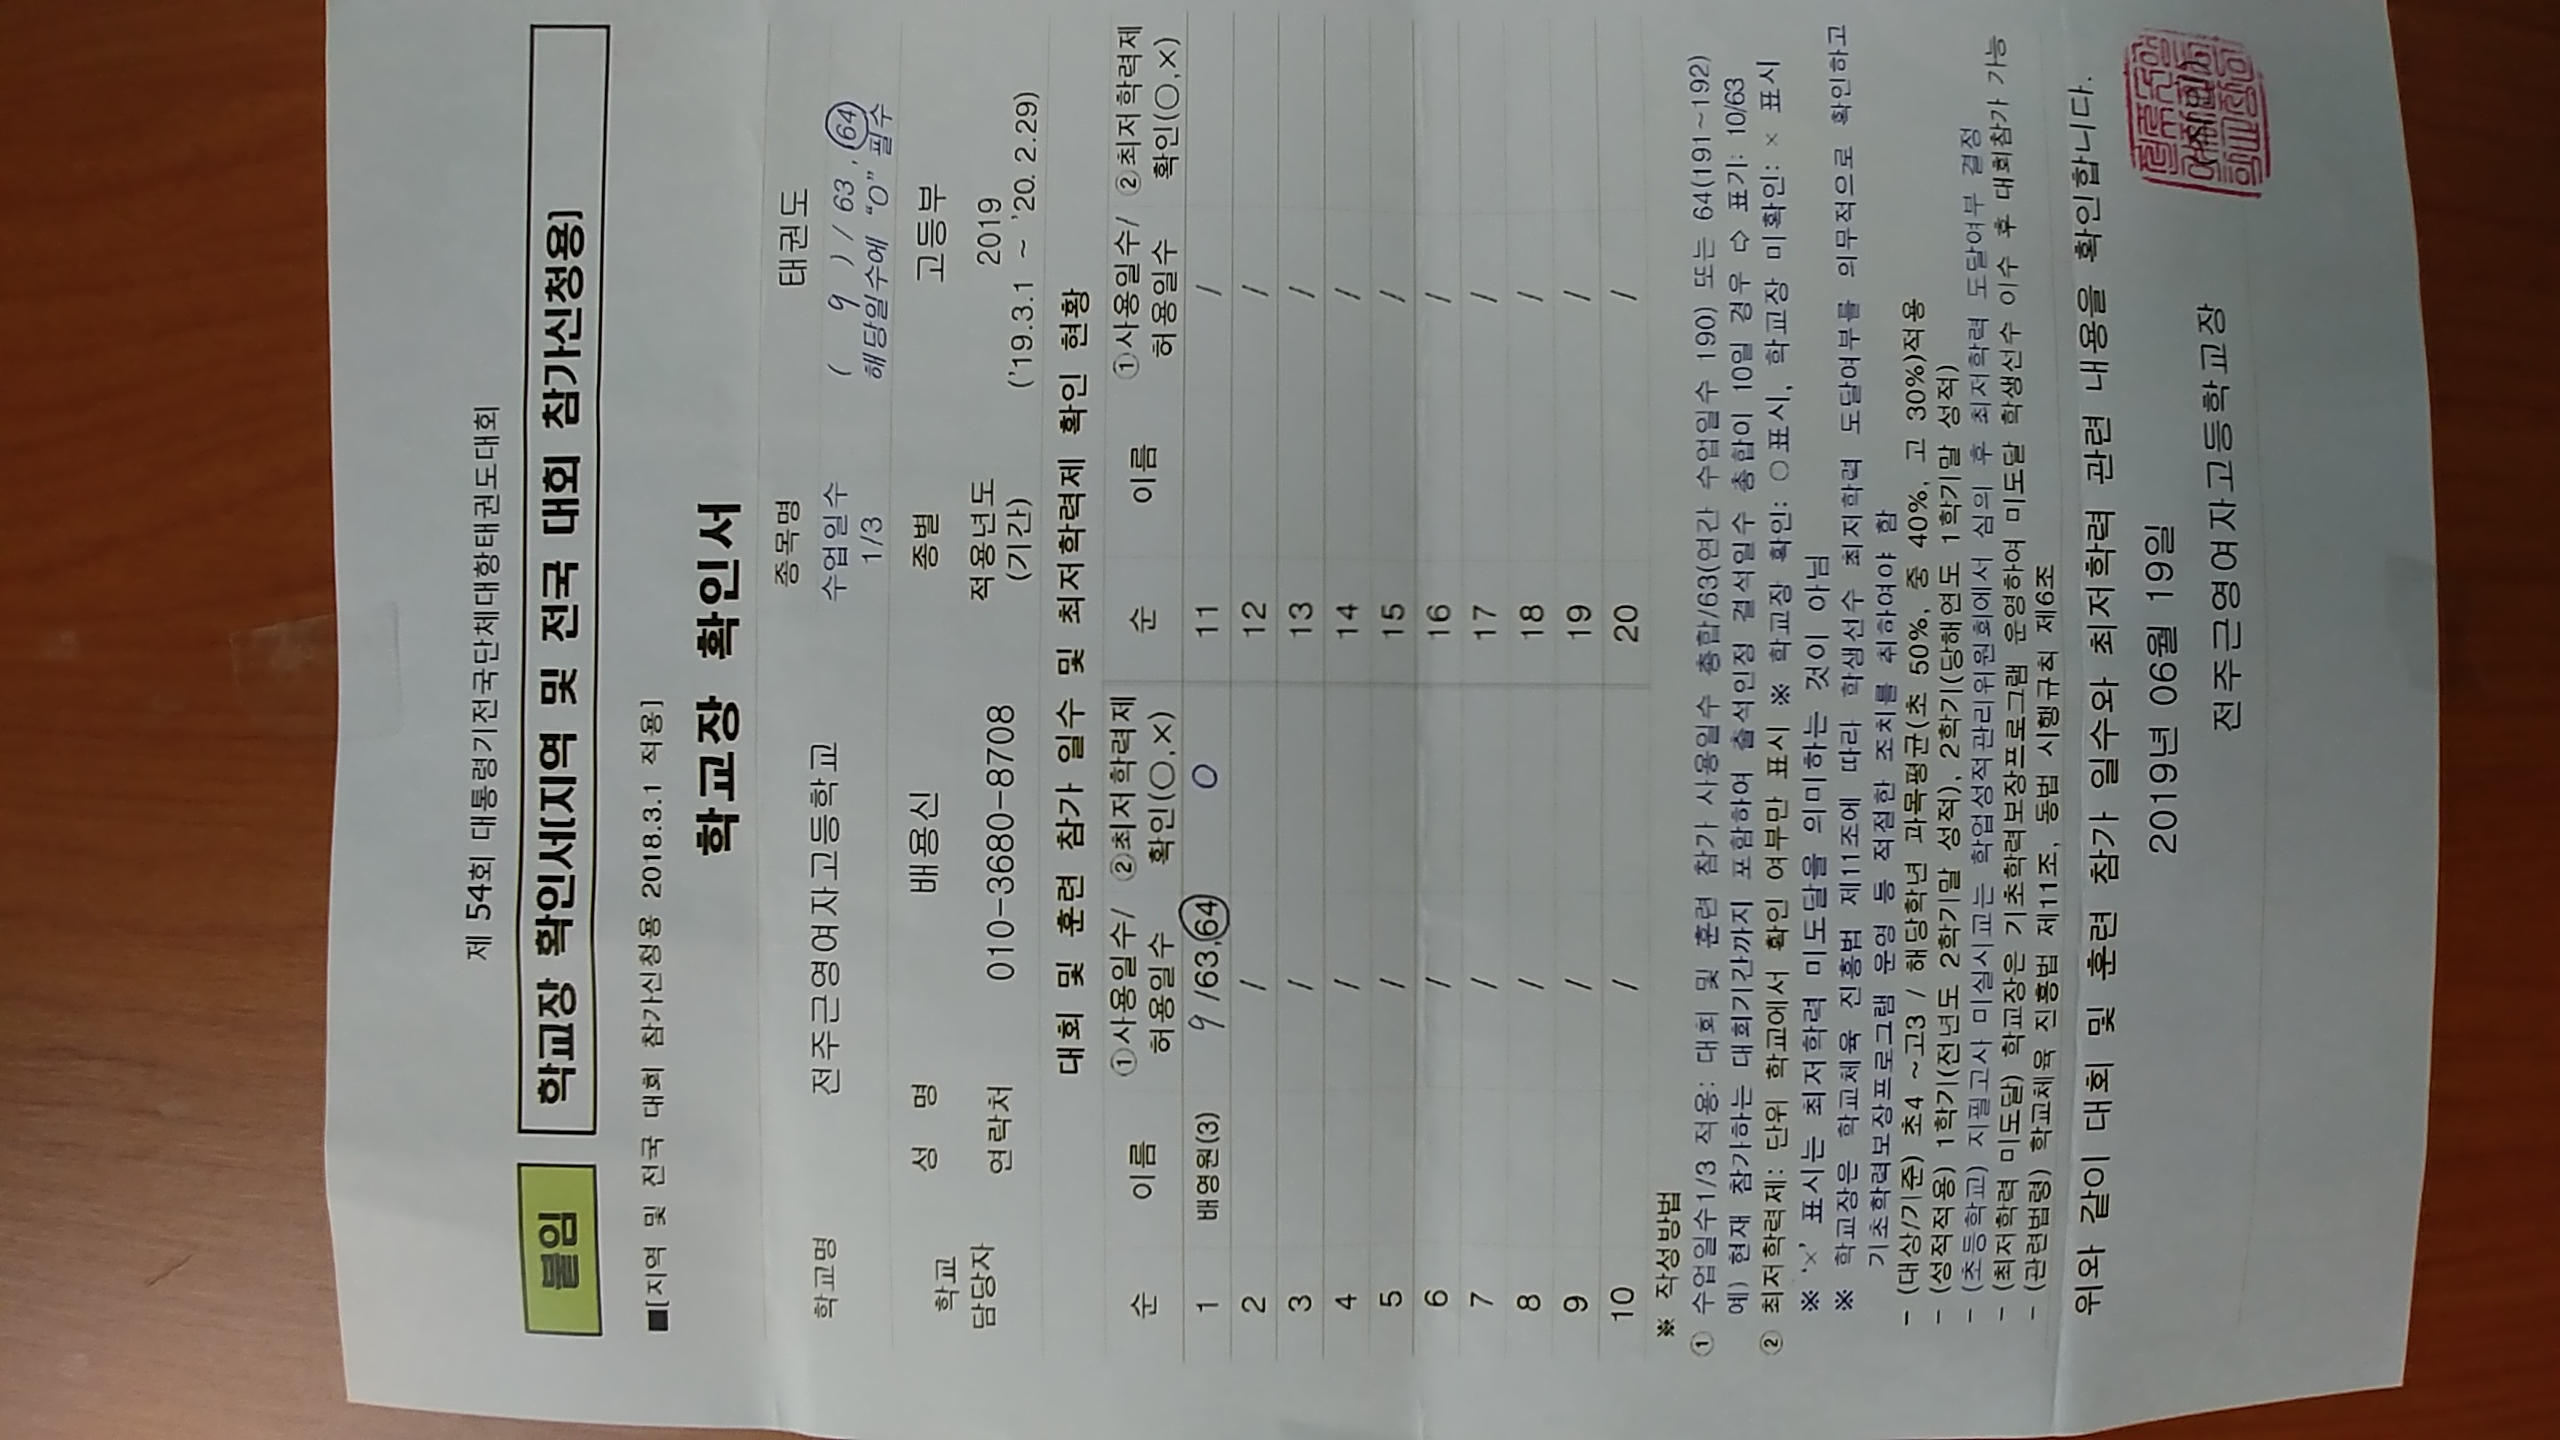 제 54회 대통령기전국단체대항태권도대회
붙임 학교장 확인서[지역 및 전국 대회 참가신청용]
■[지역 및 전국 대회 참가신청용 2018.3.1 적용]
학교장 확인서
학교명 전주근영여자고등학교 종목명 태권도
수업일수 1/3 ( 9 ) / 63 , 64
해당일수에 "O" 필수
학교 담당자 성 명 배용신 종별 고등부
연락처 010-3680-8708 적용년도 (기간) 2019
('19.3.1 ~ '20. 2.29)
대회 및 훈련 참가 일수 및 최저학력제 확인 현황
순 이름 ①사용일수/ 허용일수 ②최저학력제 확인(○,×) 순 이름 ①사용일수/ 허용일수 ②최저학력제 확인(○,×)
1 배영원(3) 9 /63,64 O 11 /
2 / 12 /
3 / 13 /
4 / 14 /
5 / 15 /
6 / 16 /
7 / 17 /
8 / 18 /
9 / 19 /
10 / 20 /
※ 작성방법
① 수업일수1/3 적용: 대회 및 훈련 참가 사용일수 총합/63(연간 수업일수 190) 또는 64(191~192)
예) 현재 참가하는 대회기간까지 포함하여 출석인정 결석일수 총합이 10일 경우 ⇨ 표기: 10/63
② 최저학력제: 단위 학교에서 확인 여부만 표시 ※ 학교장 확인: ○표시, 학교장 미확인: × 표시
※ '×' 표시는 최저학력 미도달을 의미하는 것이 아님
※ 학교장은 학교체육 진흥법 제11조에 따라 학생선수 최저학력 도달여부를 의무적으로 확인하고
기초학력보장프로그램 운영 등 적절한 조치를 취하여야 함
- (대상/기준) 초4 ~고3 / 해당학년 과목평균(초 50%, 중 40%, 고 30%)적용
- (성적적용) 1학기(전년도 2학기말 성적), 2학기(당해연도 1학기말 성적)
- (초등학교) 지필고사 미실시교는 학업성적관리위원회에서 심의 후 최저학력 도달여부 결정
- (최저학력 미도달) 학교장은 기초학력보장프로그램 운영하여 미도달 학생선수 이수 후 대회참가 가능
- (관련법령) 학교체육 진흥법 제11조, 동법 시행규칙 제6조
위와 같이 대회 및 훈련 참가 일수와 최저학력 관련 내용을 확인합니다.
2019년 06월 19일
전주근영여자고등학교장